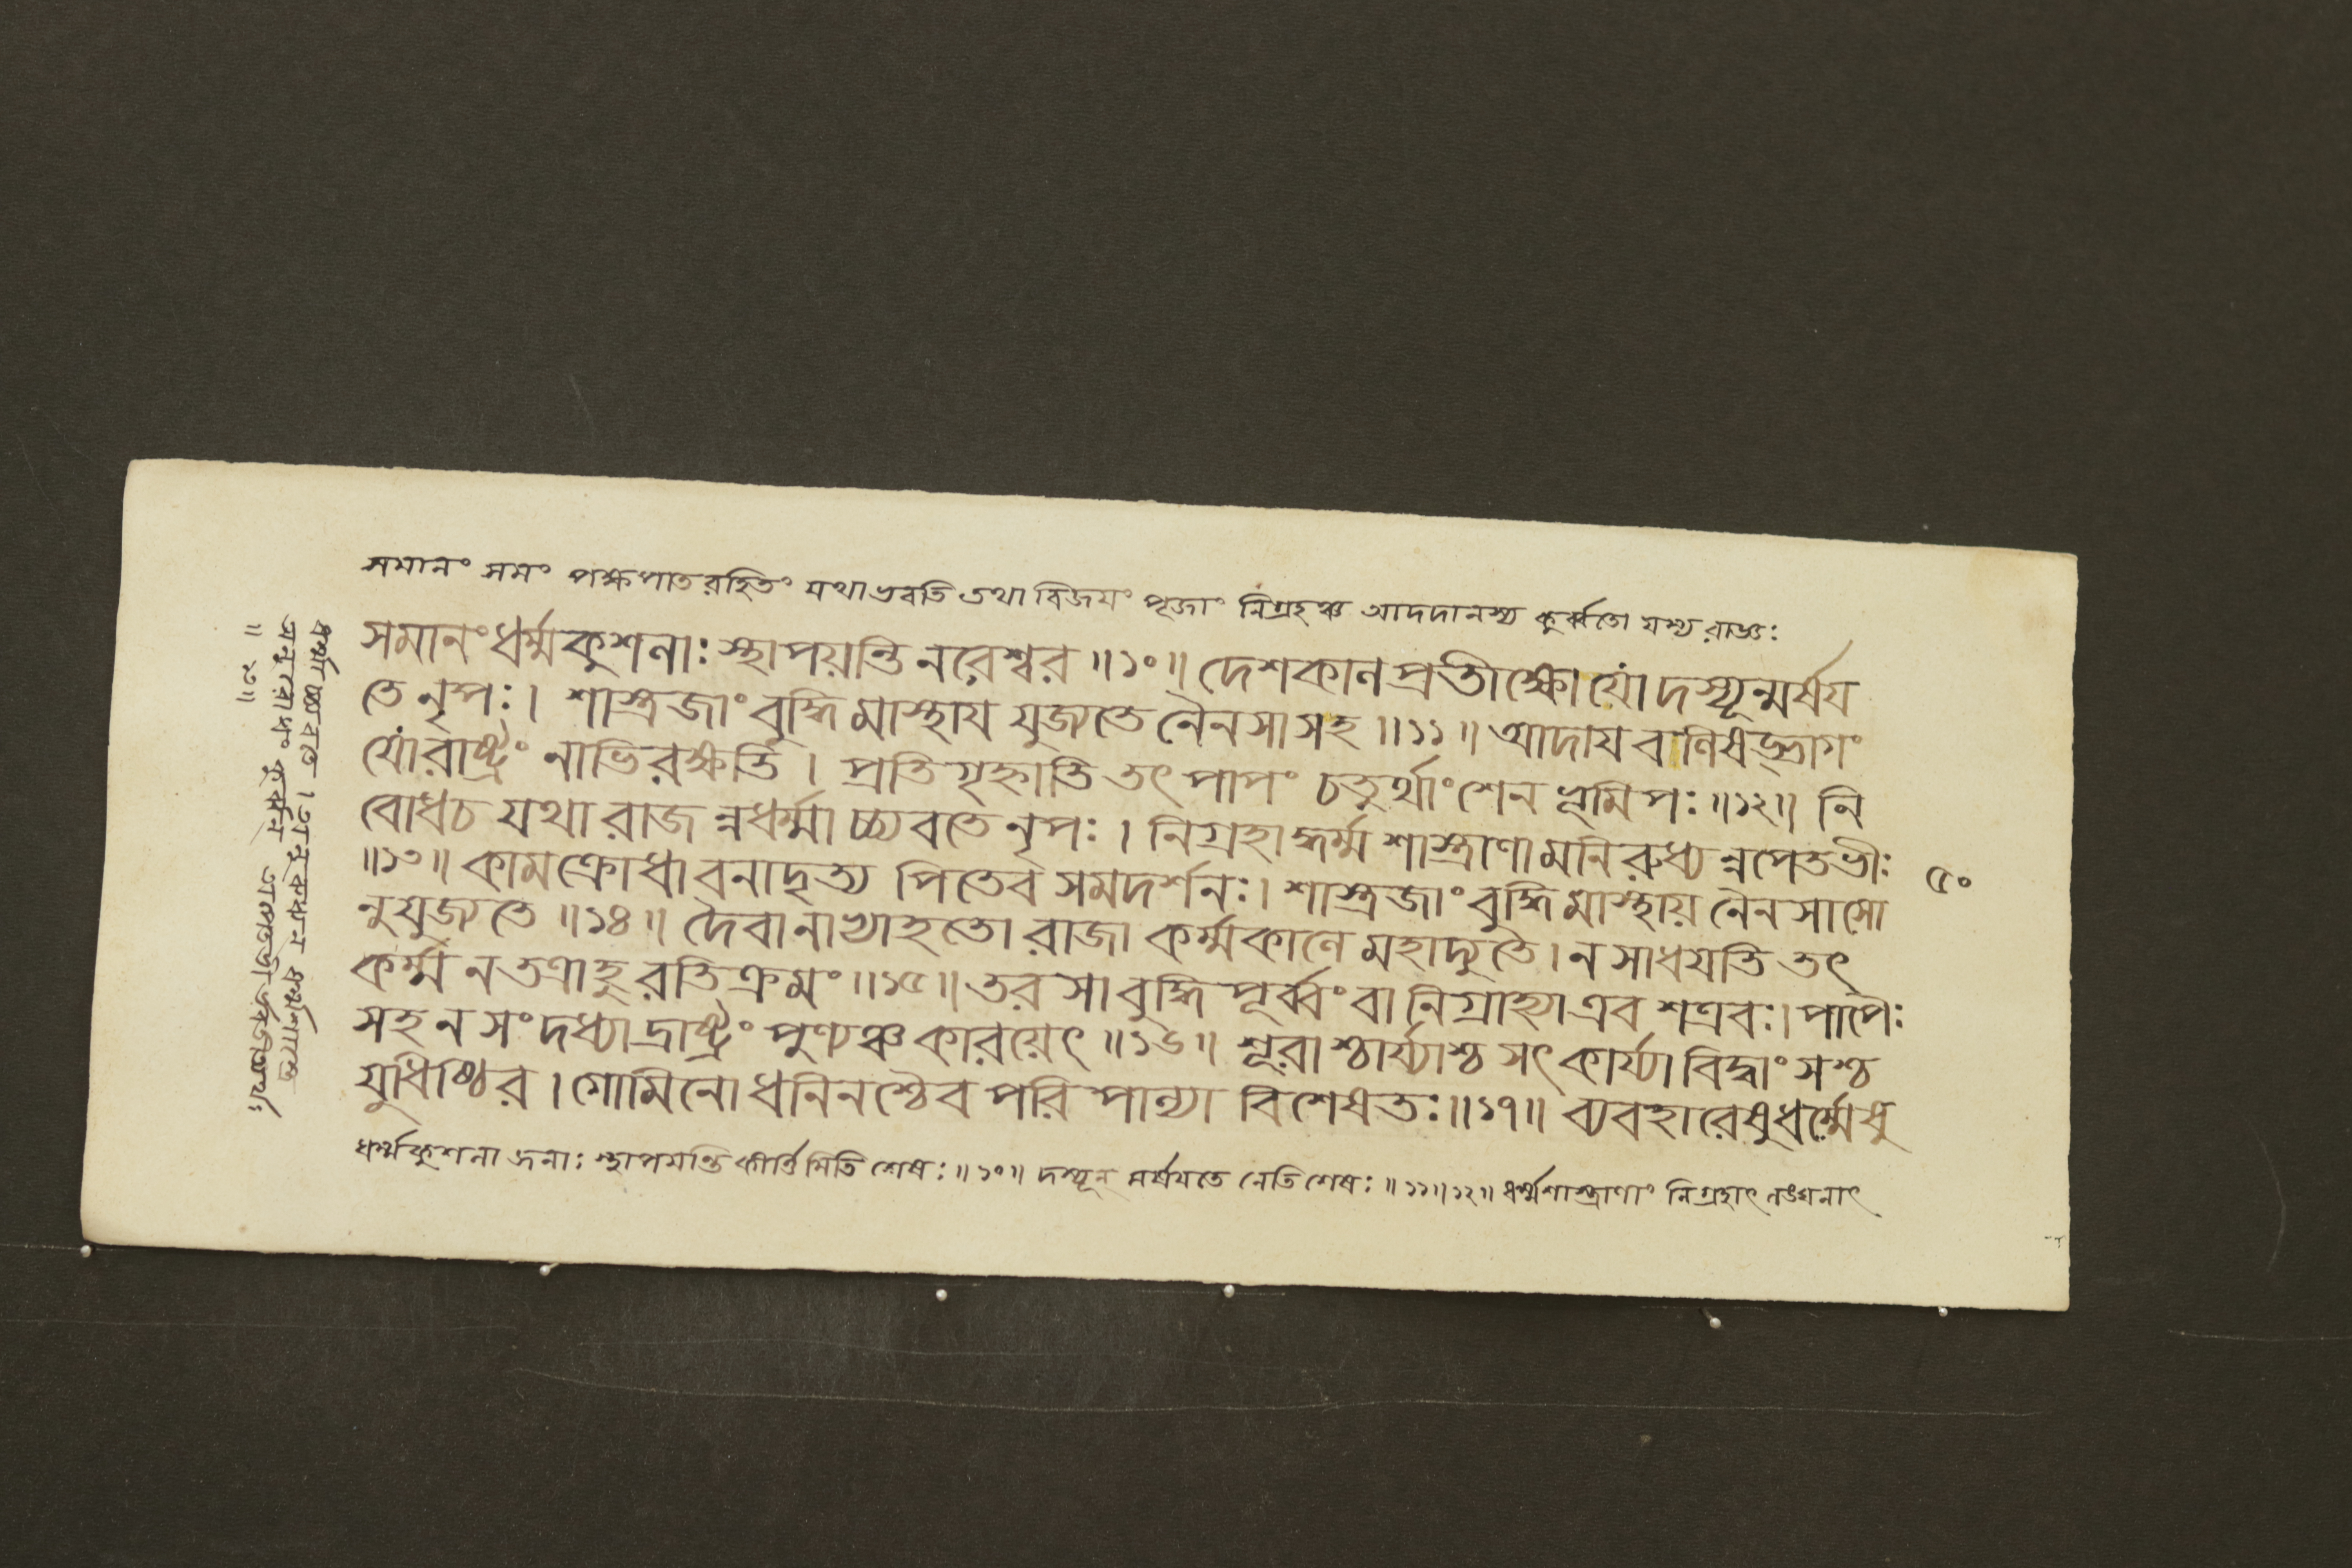 সমানং সমং পক্ষপাতরহিতং যথাভবতি তথা বিজয়ং পূজাং নিগ্রহঞ্চ আদদানস্য কুর্ব্বতো যস্য রাজ্ঞঃ
সমানং ধর্ম্মকুশলাঃ স্থাপয়ন্তি নরেশ্বর ॥১০॥ দেশকাল প্রতীক্ষো যো দস্যূন্মর্ষয
তে নৃপঃ। শাস্ত্রজাং বুদ্ধিমাস্থায যুজ্যতে নৈনসা সহ ॥১১॥ আদায বলিষড্ভাগং
যো রাষ্ট্রং নাভিরক্ষতি। প্রতিগৃহ্নাতি তৎ পাপং চতুর্থাংশেন ভূমিপঃ ॥১২॥ নি
বোধচ যথা রাজন্নধর্ম্মাচ্চ্যবতে নৃপঃ। নিগ্রহাদ্ধর্ম্মশাস্ত্রাণামনিরুধ্যন্নপেতভীঃ
॥১৩॥ কামক্রোধাবনাদৃত্য পিতেব সমদর্শনঃ। শাস্ত্রজাং বুদ্ধিমাস্থায় নৈনসা সো
নুযুজ্যতে ॥১৪॥ দৈবেনাভ্যাহতো রাজা কর্ম্মকালে মহাদ্যুতে। ন সাধযতি তৎ
কর্ম্ম ন তত্রাহুরতিক্রমং ॥১৫॥ তরসা বুদ্ধিপূর্ব্বং বা নিগ্রাহ্যা এব শত্রবঃ। পাপৈঃ
সহ ন সংদধ্যাদ্রাষ্ট্রং পুণ্যঞ্চ কারয়েৎ ॥১৬॥ শূরাশ্চার্য্যাশ্চ সৎকার্য্যা বিদ্বাংসশ্চ
যুধিষ্ঠির। গোমিনো ধনিনশ্চৈব পরিপাল্যা বিশেষতঃ ॥১৭॥ ব্যবহারেষু ধর্ম্মেষু
৫০
ধর্ম্মকুশলা জনাঃ স্থাপয়ন্তি কীর্ত্তিমিতি শেষঃ ॥১০॥ দস্যূন্ মর্ষযতে নেতি শেষঃ ॥১১॥১২॥ ধর্ম্মশাস্ত্রাণাং নিগ্রহাৎ লঙ্ঘনাৎ
ধর্ম্মাচ্চ্যবতে। ধর্ম্মশাস্ত্র
অনুরোধং কুর্ব্বন্
॥১৩॥